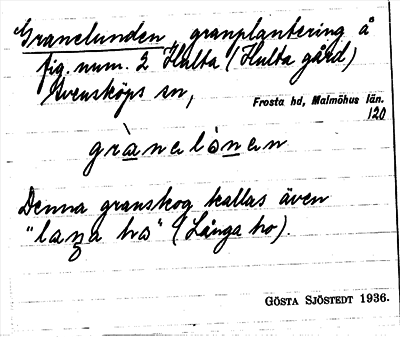 Granelunden, granplantering å
fig. num. 2 Hulta (Hulta gård)
Svensköps sn,
Frosta hd, Malmöhus län.
120
gràneló̲nen
Denna granskog kallas även
"laŋa ho" (Långa ho).
GÖSTA SJÖSTEDT 1936.